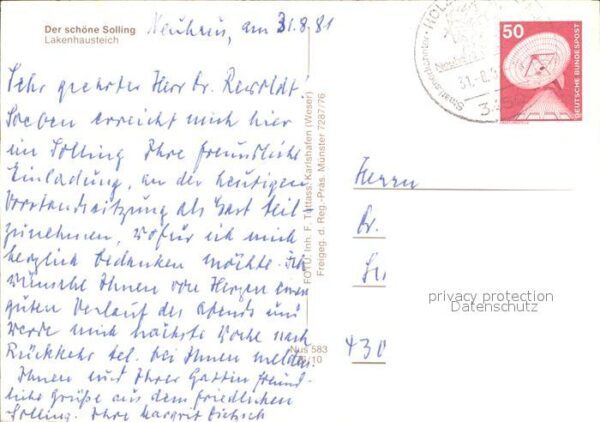 Der schöne Solling
Lakenhausteich
Neuhaus, am 31.8.81
Sehr geehrter Herr Dr. Rewoldt!
Soeben erreicht mich hier
im Solling Ihre freundliche
Einladung, an der heutigen
Vorstandssitzung als Gast teil
zunehmen, wofür ich mich
herzlich bedanken möchte. Ich
wünsche Ihnen von Herzen einen
guten Verlauf des Abends und
werde mich nächste Woche nach
Rückkehr tel. bei Ihnen melden.
Ihnen und Ihrer Gattin freund-
liche Grüße aus dem friedlichen
Solling. Ihre Margrit Dietsch
FOTO: Inh. F. Tattass/Karlshafen (Weser)
Freigeg. d. Reg.-Präs. Münster 7287/76
Nus 583
/10
HOLZ
Neuhaus
31.-8.
3450
50
DEUTSCHE BUNDESPOST
Herrn
Dr.
430
privacy protection
Datenschutz